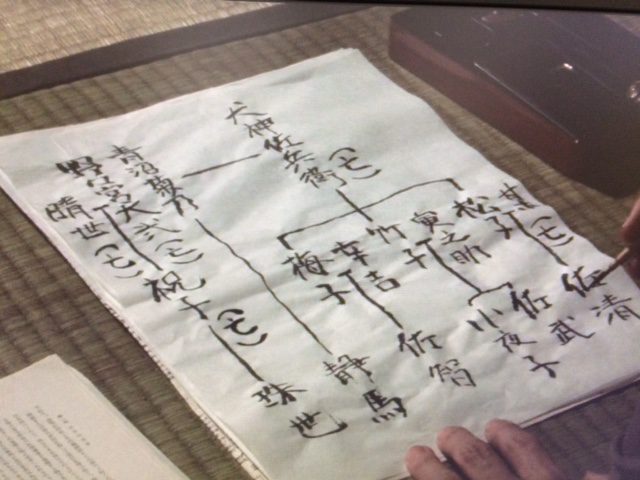 犬神佐兵衛(亡)
某(亡)
松子
佐清
寅之助
竹子
佐武
小夜子
幸吉
梅子
佐智
青沼菊乃
静馬
野々宮大弐(亡)
晴世(亡)
祝子(亡)
珠世